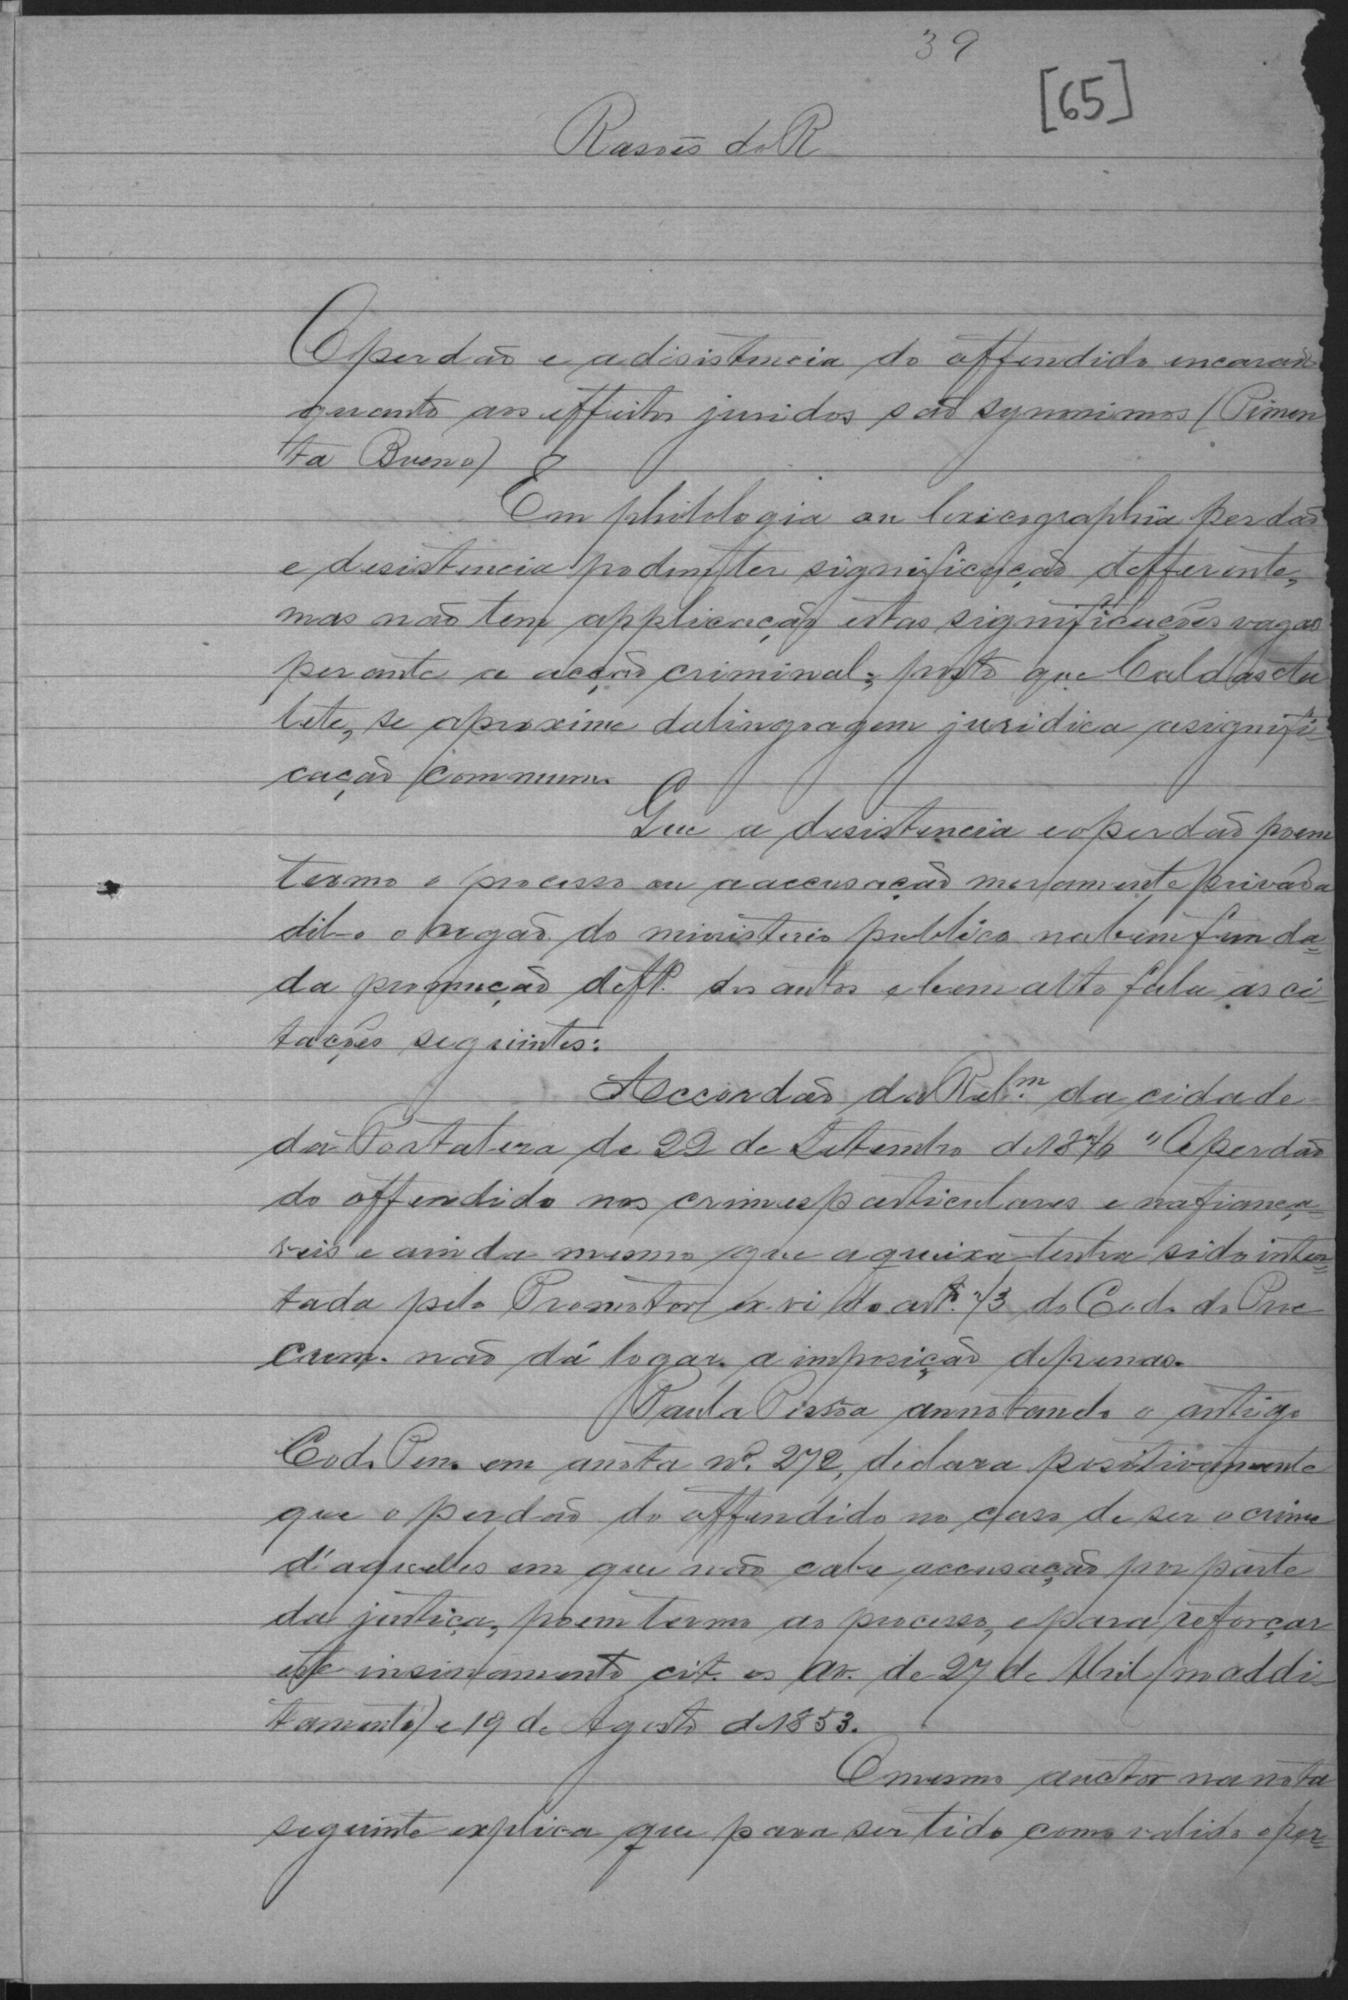 39
[65]
Rasões do R
O perdão e a disistencia do offendido encarados
quanto aos effeitos juridos são synonimos (Pimen
ta Bueno)
Em philologia ou lexicographia perdão
e desistencia podem ter significação defferente,
mas não tem applicação estas significações vagas
perante a acção criminal; posto que Caldas Au
lete, se aproxime da lingoagem juridica a signifi-
cação commum.
Que a desistencia e o perdão poem
termo o processo ou a accusação meramente privada
dil-o o orgão do ministerio publico na bem funda-
da promoção de fl. dos autos e bem alto fala as ci-
tações seguintes:
Accordão da Relm. da cidade
da Fortaleza de 22 de Setembro de 1876 "O perdão
do offendido nos crimes particulares e nafiança-
veis e ainda mesmo que a queixa tenha sido inten-
tada pelo Promotor ex-vi do artº. 73 do Cod. do Proc
crem. não dá logar a imposição de penas.
Paula Pessôa annotando o antigo
Cod. Pen. em a nota nº. 272, declara positivamente
que o perdão do offendido no caso de ser o crime
d'aquelles em que não cabe accusação por parte
da justiça, poem termo ao processo, e para reforçar
este insinamento cit. os Av. de 27 de Abril (no addi-
tamento) e 19 de Agosto de 1853.
O mesmo auctor na nota
seguinte explica que para ser tido como valido o per-